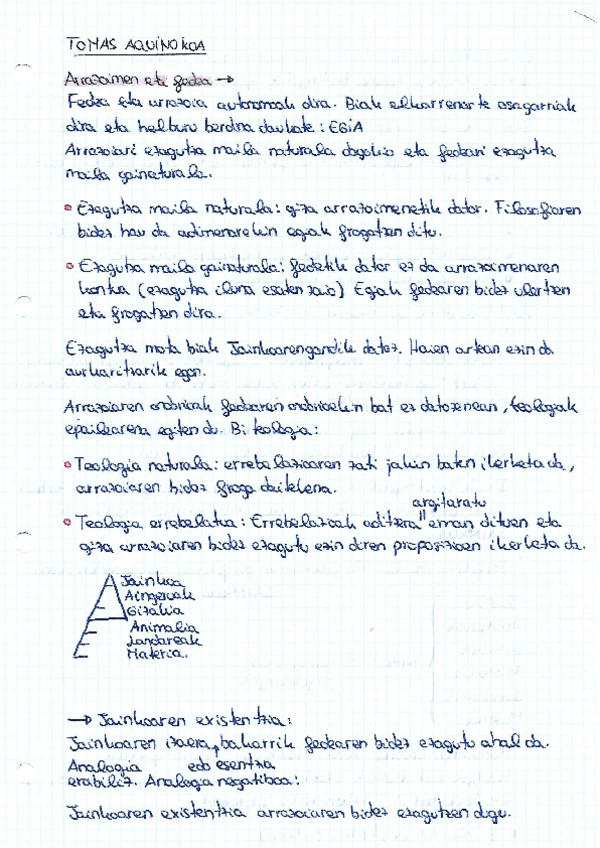 TOMAS AQUINOKOA
Arrazoimen eta fedea →
Fedea eta arrazoia autonomoak dira. Biak elkarrenarte osagarriak
dira eta helburu berdina daukate: EGIA
Arrazoiari ezagutza maila naturala dagokio eta fedeari ezagutza
maila gainaturala.
• Ezagutza maila naturala: giza arrazoimenetik dator. Filosofiaren
bidez hau da adimenarekin egiak frogatzen ditu.
• Ezagutza maila gainaturala: fedetik dator ez da arrazoimenaren
kontra (ezagutza iluna esaten zaio) Egiak fedearen bidez ulertzen
eta frogatzen dira.
Ezagutza mota biak Jainkoarengandik datoz. Haien artean ezin da
aurkaritzarik egon.
Arrazoiaren ondorioak fedearen ondorioekin bat ez datozenean, teologiak
epailearena egiten du. Bi teologia:
• Teologia naturala: errebelazioaren zati jakin baten ikerketa da,
arrazoiaren bidez froga daitekena.
argitaratu
• Teologia errebelatua: Errebelazioak aditzera " eman dituen eta
giza arrazoiaren bidez ezagutu ezin diren proposizioen ikerketa da.
Jainkoa
Aingeruak
Gizakia
Animalia
Landareak
Materia.
→ Jainkoaren existentzia:
Jainkoaren izaera, bakarrik fedearen bidez ezagutu ahal da.
Analogia edo esentzia
erabiliz. Analogia negatiboa:
Jainkoaren existentzia arrazoiaren bidez ezagutzen dugu.